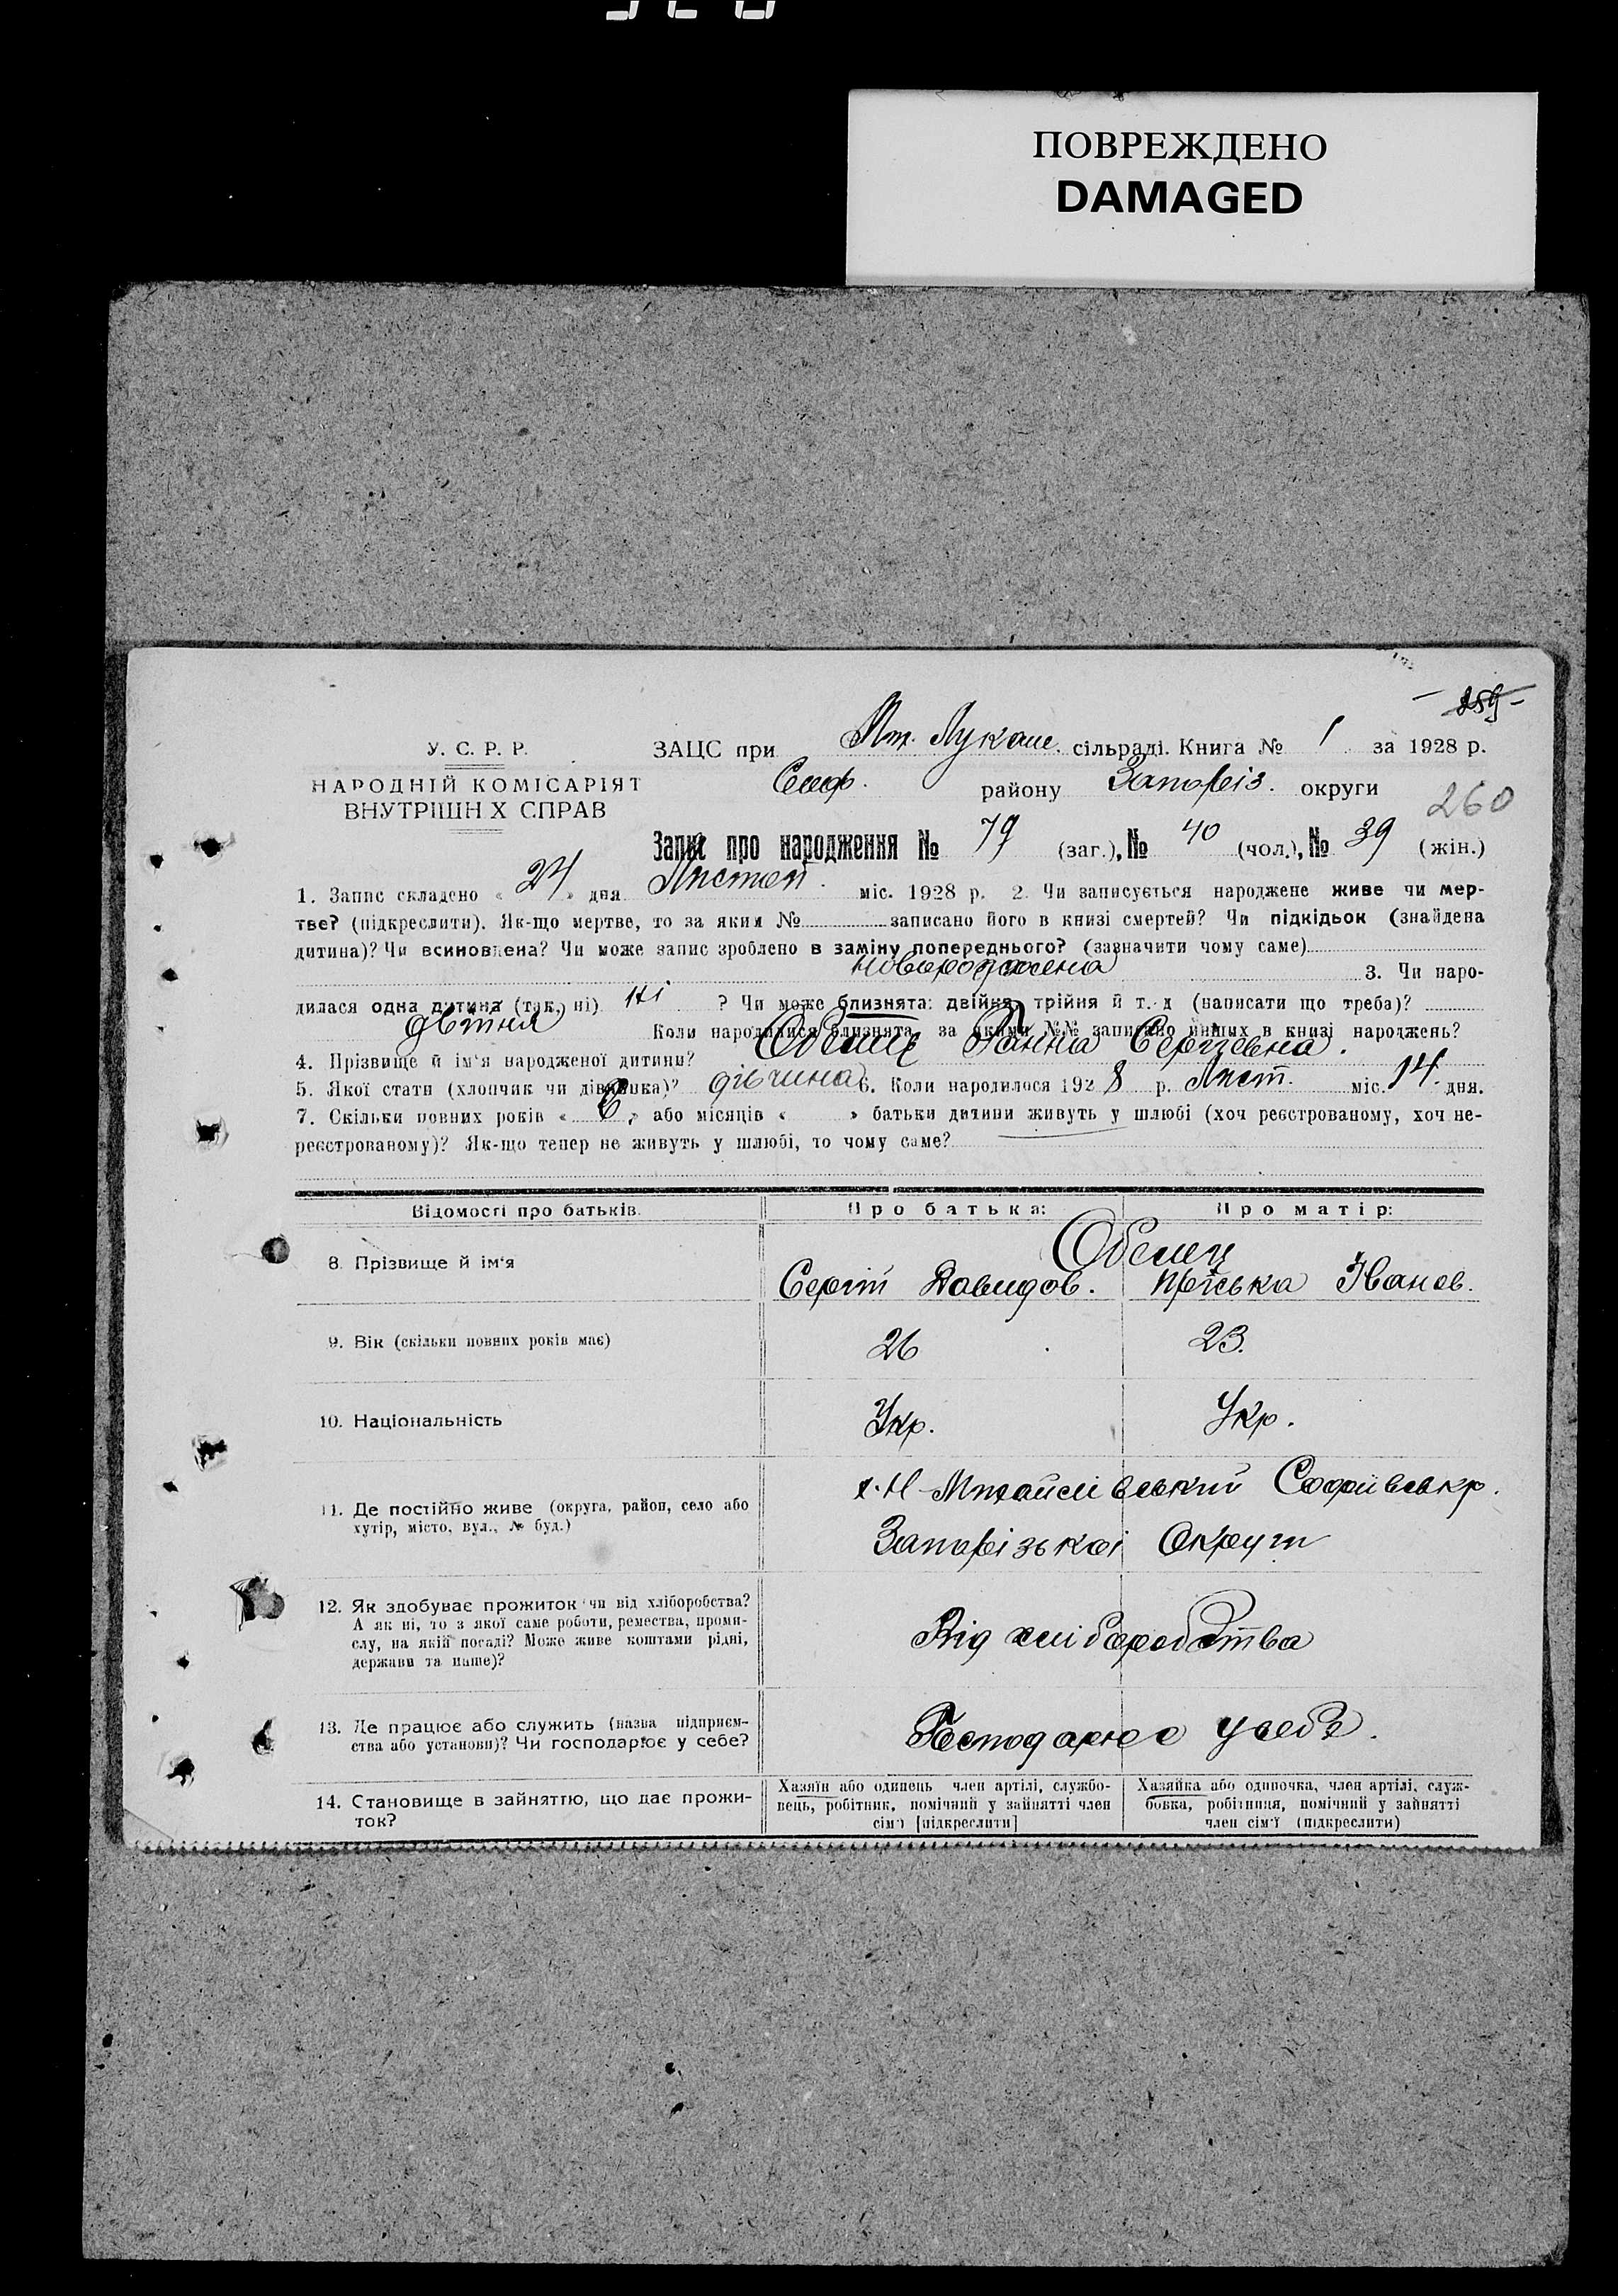 ПОВРЕЖДЕНО
DAMAGED
- 259 -
У. С. Р. Р.
НАРОДНІЙ КОМІСАРІЯТ
ВНУТРІШН Х СПРАВ
ЗАЦС при Лукаше. сільраді. Книга № 1 за 1928 р.
району Запоріз. округи
260
Запис про народження № 79 (заг.), № 40 (чол.), № 39 (жін.)
1. Запис складено « 24 » дня Листоп. міс. 1928 р. 2. Чи записується народжене живе чи мер-
тве? (підкреслити). Як-що мертве, то за яким № записано його в книзі смертей? Чи підкідьок (знайдена
дитина)? Чи всиновлена? Чи може запис зроблено в заміну попереднього? (зазначити чому саме)
новарожджена 3. Чи наро-
дилася одна дитина (так, ні) Ні ? Чи може близнята: двійня, трійня й т. д (написати що треба)?
двійня Коли народилися близнята, за якими №№ записано інших в книзі народжень?
4. Прізвище й ім'я народженої дитини? Обелец Ганна Сергіевна.
5. Якої стати (хлопчик чи дівчинка)? дівчина 6. Коли народилося 1928 р. Лист. міс. 14. дня.
7. Скільки повних років « 6 » або місяців « » батьки дитини живуть у шлюбі (хоч реєстрованому, хоч не-
реєстрованому)? Як-що тепер не живуть у шлюбі, то чому саме?
Відомості про батьків.
Про батька:
Про матір:
8. Прізвище й ім'я
Обелец
Сергій Давидов.
Пріська Іванов.
9. Вік (скільки повних років має)
26
23.
10. Національність
Укр.
Укр.
11. Де постійно живе (округа, район, село або
хутір, місто, вул., № буд.)
х. Н-Михайлівський Софиівськр.
Запорізькоі Округи
12. Як здобуває прожиток чи від хліборобства?
А як ні, то з якої саме роботи, ремества, проми-
слу, на якій посаді? Може живе коштами рідні,
держави та инше)?
Від хліборобства
13. Де працює або служить (назва підприєм-
ства або установи)? Чи господарює у себе?
Господарює у себе.
14. Становище в зайняттю, що дає прожи-
ток?
Хазяїн або одинець член артілі, службо-
вець, робітник, помічний у зайнятті член
сім'ї [підкреслити]
Хазяйка або одиночка, член артілі, служ-
бовка, робітниця, помічний у зайнятті
член сім'ї (підкреслити)